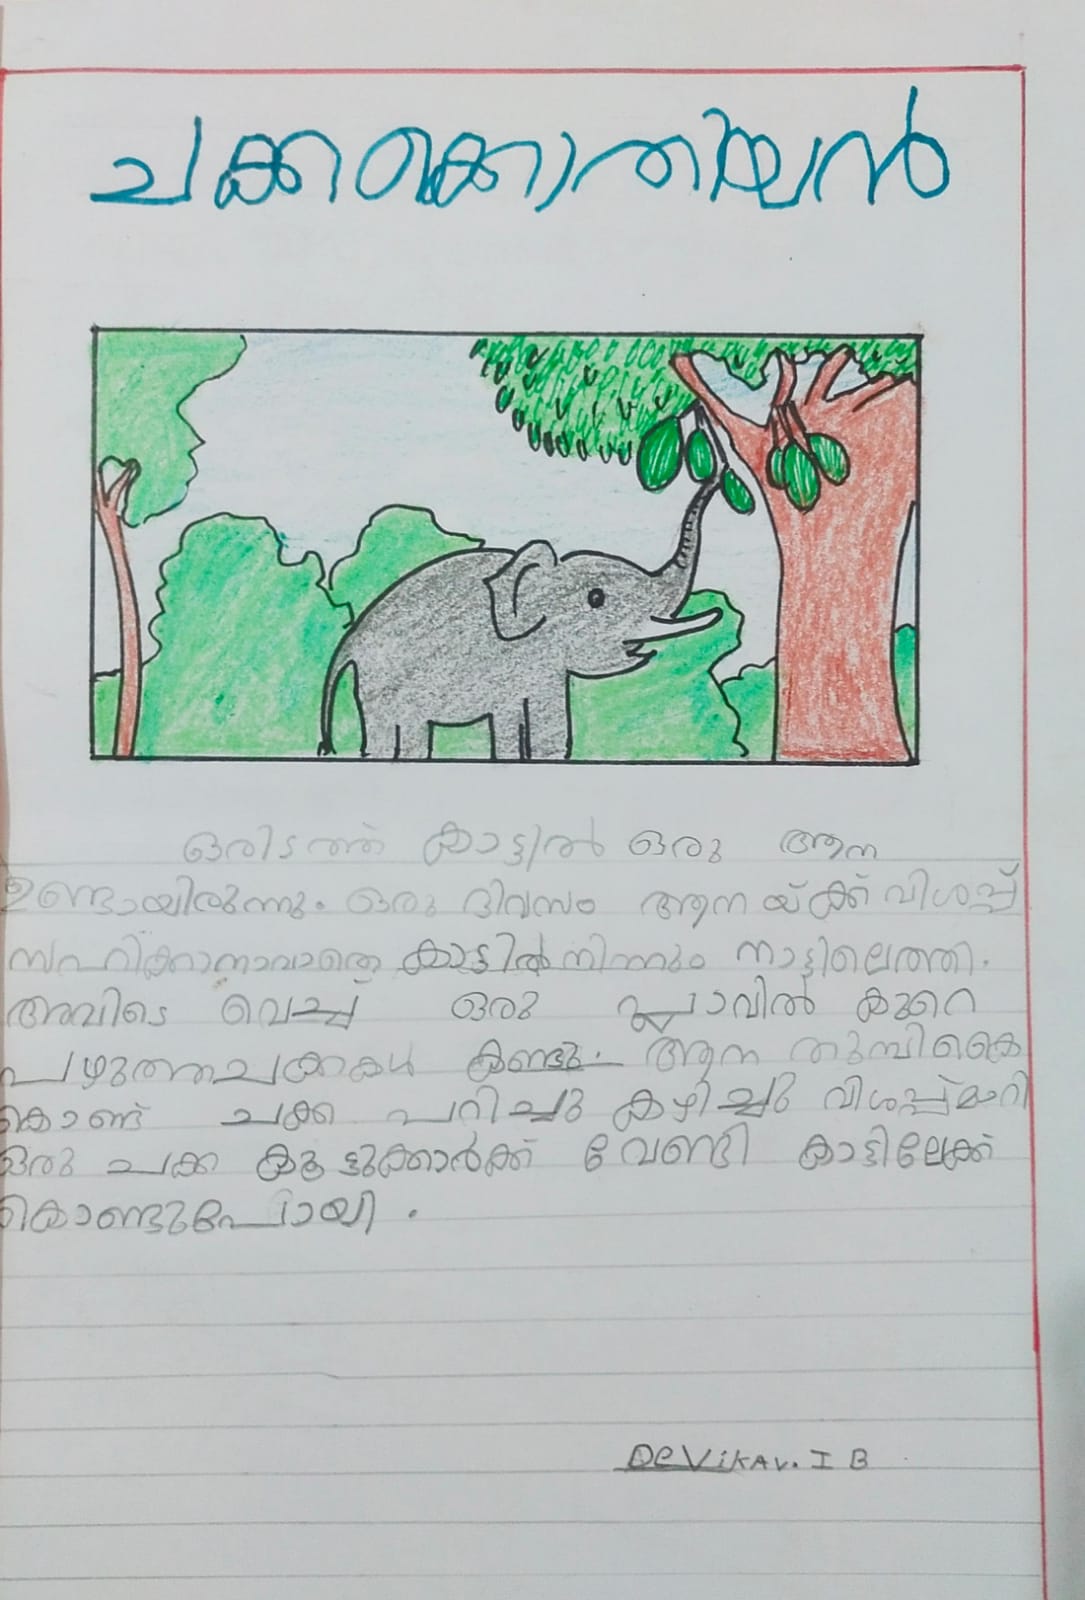 ചക്കക്കൊതിയൻ
ഒരിടത്ത് കാട്ടിൽ ഒരു ആന
ഉണ്ടായിരുന്നു. ഒരു ദിവസം ആന യ്ക്ക് വിശപ്പ്
സഹിക്കാനാവാതെ കാട്ടിൽ നിന്നും നാട്ടിലെത്തി.
അവിടെ വെച്ച് ഒരു പ്ലാവിൽ കുറെ
പഴുത്തചക്കകൾ കണ്ടു. ആന തുമ്പികൈ
കൊണ്ട് ചക്ക പറിച്ചു കഴിച്ചു വിശപ്പ്മാറി
ഒരു ചക്ക കൂട്ടുക്കാർക്ക് വേണ്ടി കാട്ടിലേക്ക്
കൊണ്ടുപോയി .
DeVikAv. I B